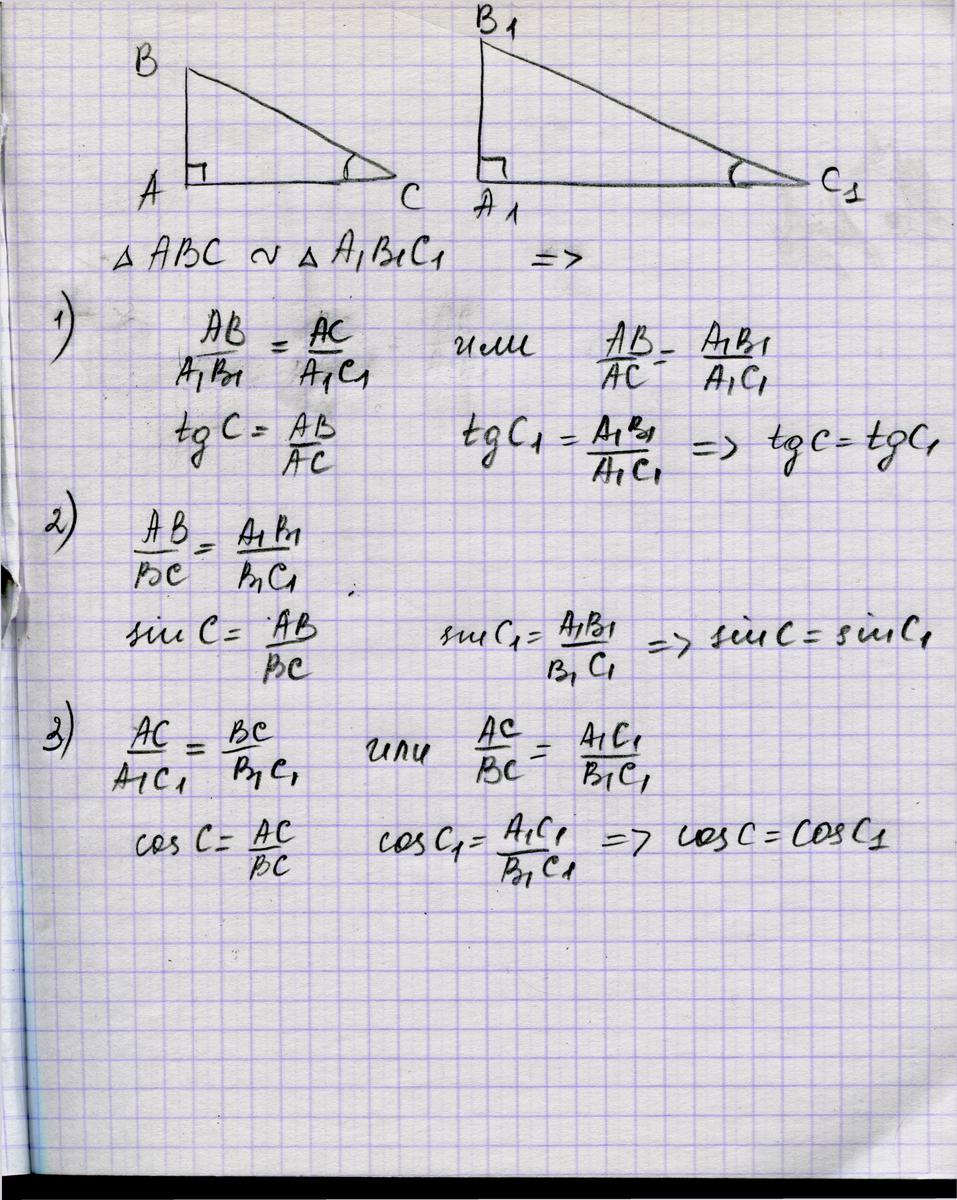 B B1
A C A1 C1
△ ABC ~ △ A1B1C1 =>
1) AB/A1B1 = AC/A1C1 или AB/AC = A1B1/A1C1
tg C = AB/AC tg C1 = A1B1/A1C1 => tg C = tg C1
2) AB/BC = A1B1/B1C1
sin C = AB/BC sin C1 = A1B1/B1C1 => sin C = sin C1
3) AC/A1C1 = BC/B1C1 или AC/BC = A1C1/B1C1
cos C = AC/BC cos C1 = A1C1/B1C1 => cos C = cos C1